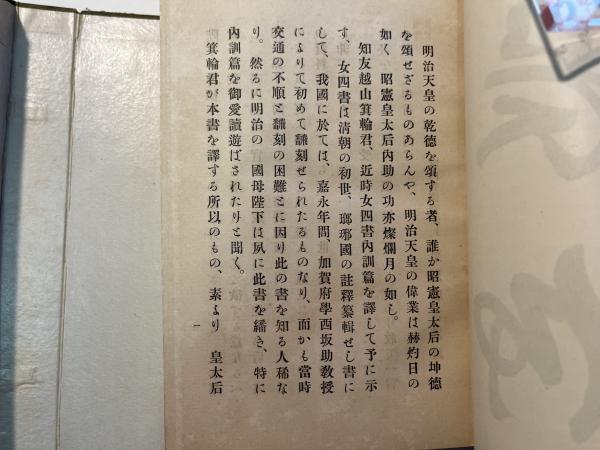 明治天皇の乾德を頌する者、誰か昭憲皇太后の坤德
を頌せざるものあらんや、明治天皇の偉業は赫灼日の
如く　昭憲皇太后內助の功亦燦爛月の如し。
知友越山箕輪君、近時女四書內訓篇を譯して予に示
す、女四書は淸朝の初世、瑯琊國の註釋纂輯せし書に
して、我國に於ては、嘉永年間、加賀府學西坂助敎授
によりて初めて飜刻せられたるものなり、而かも當時
交通の不順と飜刻の困難とに因り此の書を知る人稀な
り。然るに明治の　國母陛下は夙に此書を繙き、特に
內訓篇を御愛讀遊ばされたりと聞く。
箕輪君が本書を譯する所以のもの、素より　皇太后
一